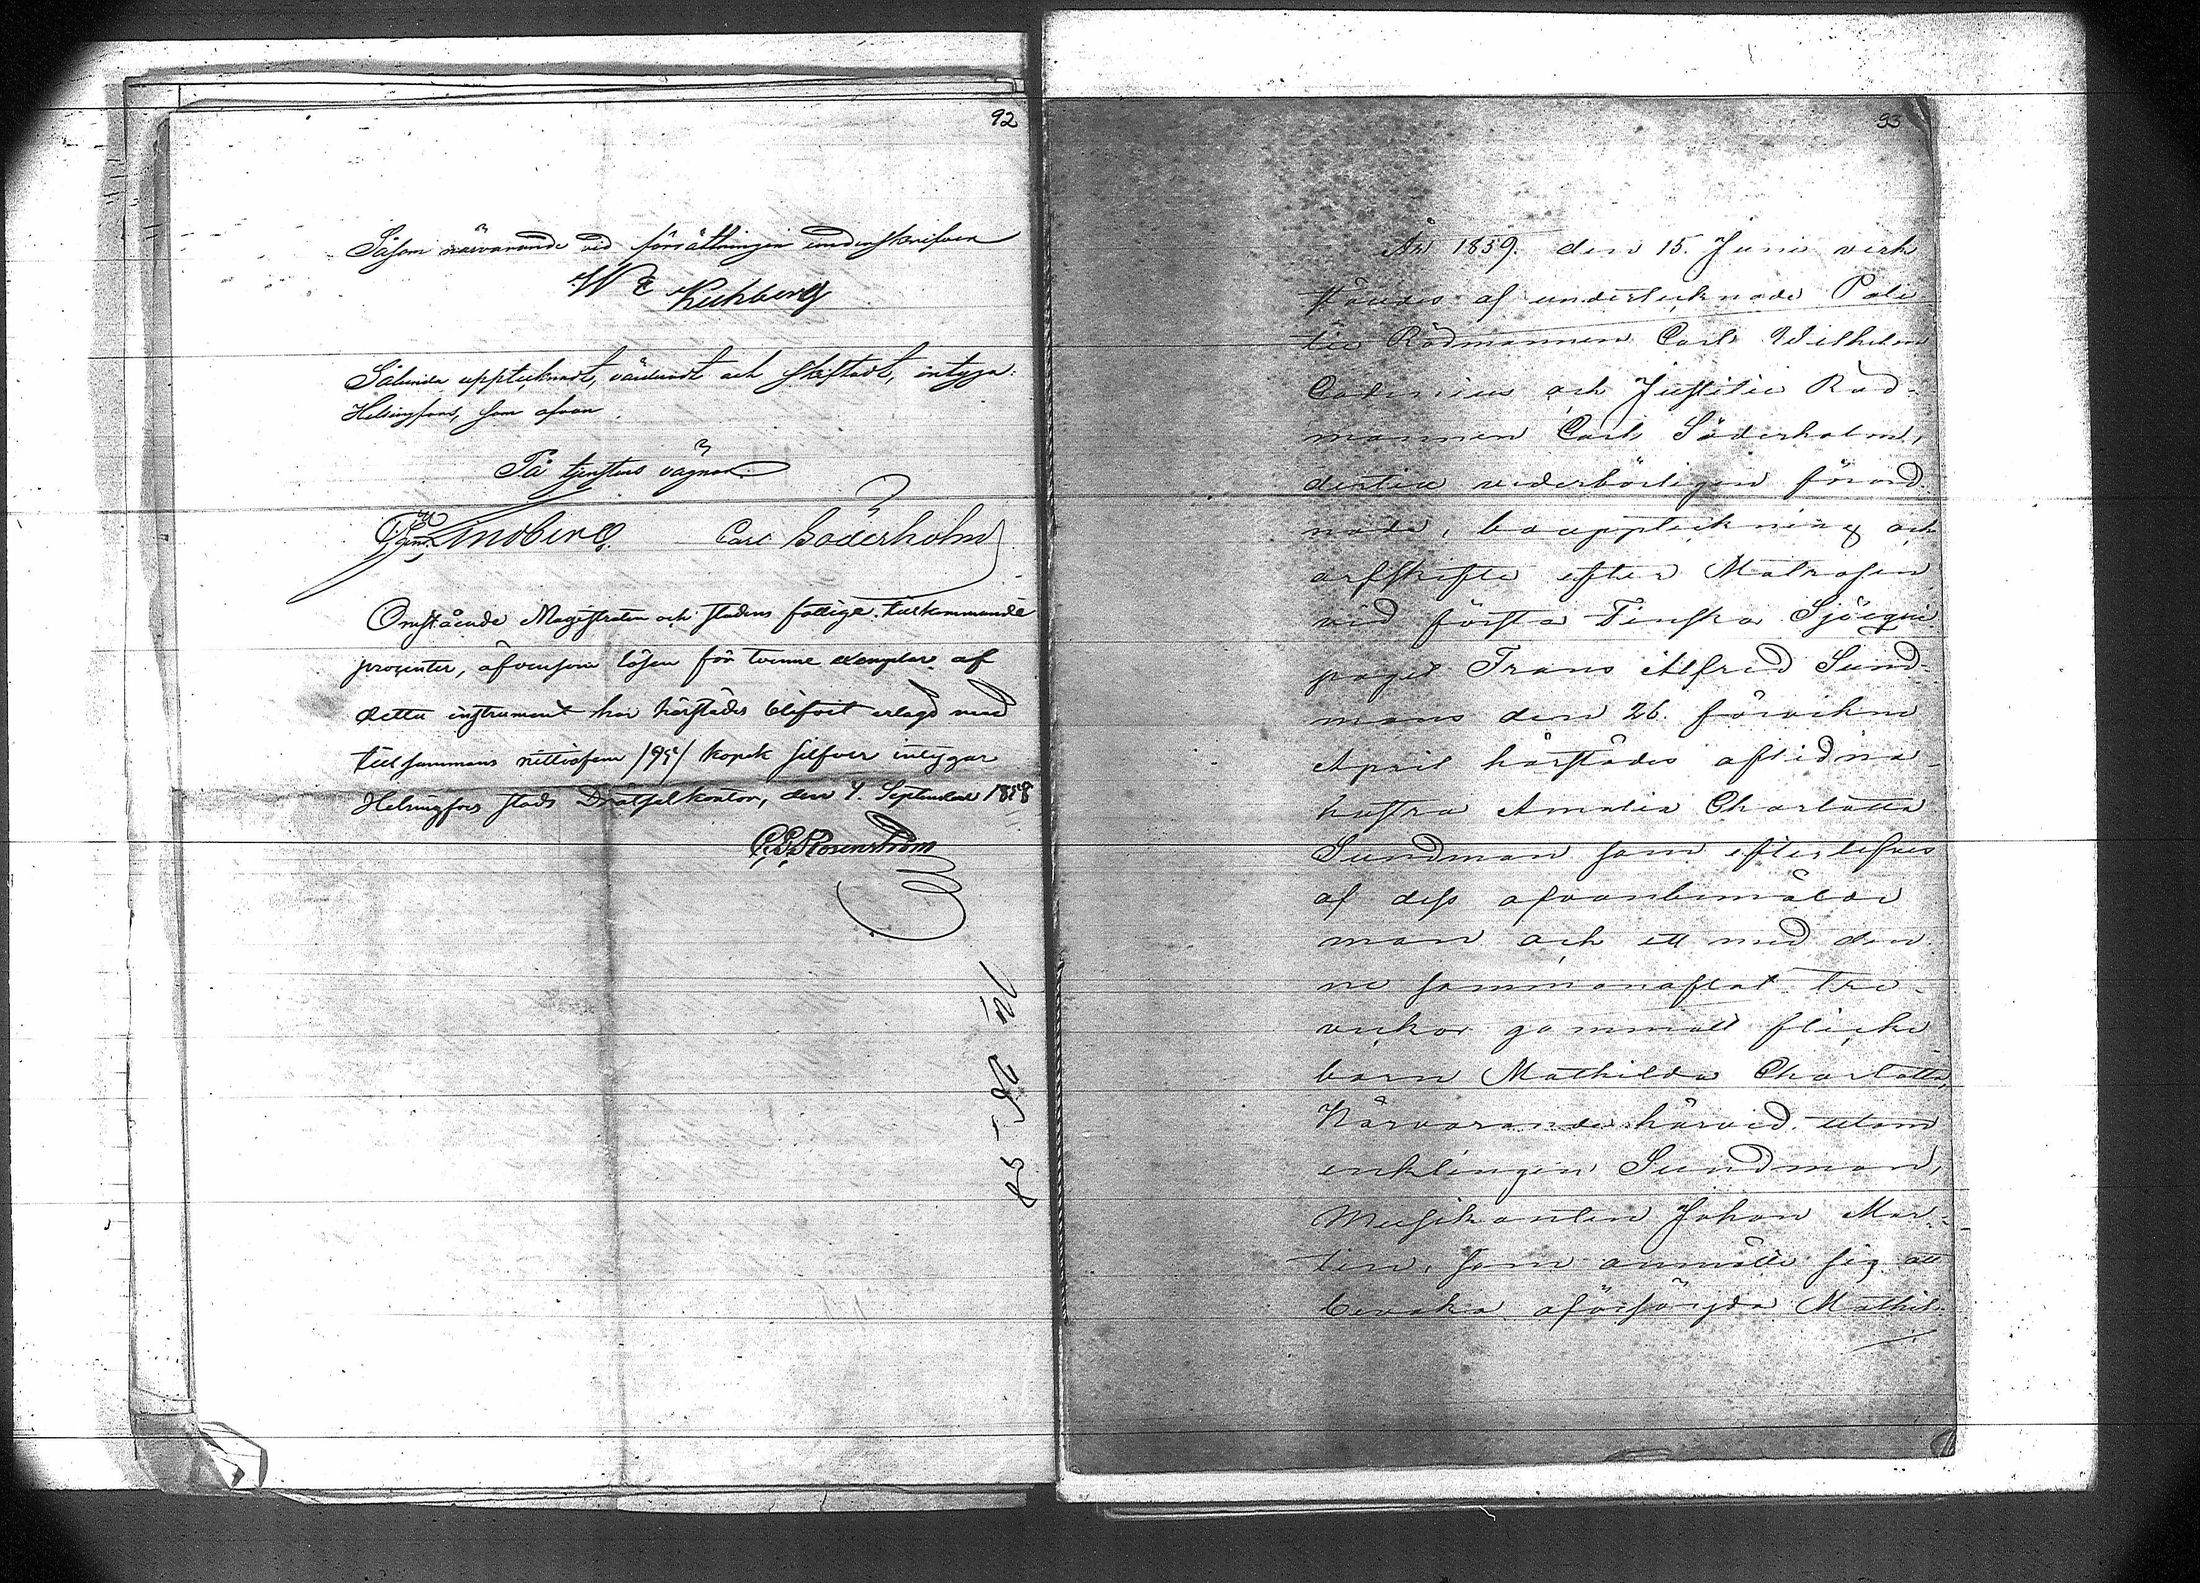 92
Såsom närvarande vid förrättningen underskrifver
W E Kuhberg
Sålunda upptecknadt, värderadt och skiftadt, intyga:
Helsingfors, som ofvan.
På tjenstens vägnar.
Lindberg. Carl Söderholm
Omstående Magistraten och stadens fattige tillkommande
procenter, äfvensom lösen för tvenne exemplar af
detta instrument har härstädes blifvit erlagd med
tillsammans nittiofem /95/ kopek silfver intygar
Helsingfors stads Drätselkontor, den 4. September 1858
Rosenström
93
År 1859. den 15. Juni verk
stäldes af undertecknade Poli
tie Rådmannen Carl Wilhelm
och Justitie Råd-
mannen Carl Söderholm,
dertill vederbörligen förord
nade, bouppteckning och
arfskifte efter Matrosen
vid första Finska Sjöequi
paget Frans Alfred Sund-
mans den 26. förvikne
April härstädes aflidna
hustru Amalia Charlotta
Sundman som efterlefves
af dess ofvanbemälde
man och ett med den
ne sammanaflat tre
veckor gammalt flicke
barn Mathilda Charlotta,
Närvarande härvid utom
enklingen Sundman,
Musikanten Johan Mar-
tin, som anmälte sig att
bevaka oförsörjda Mathil-